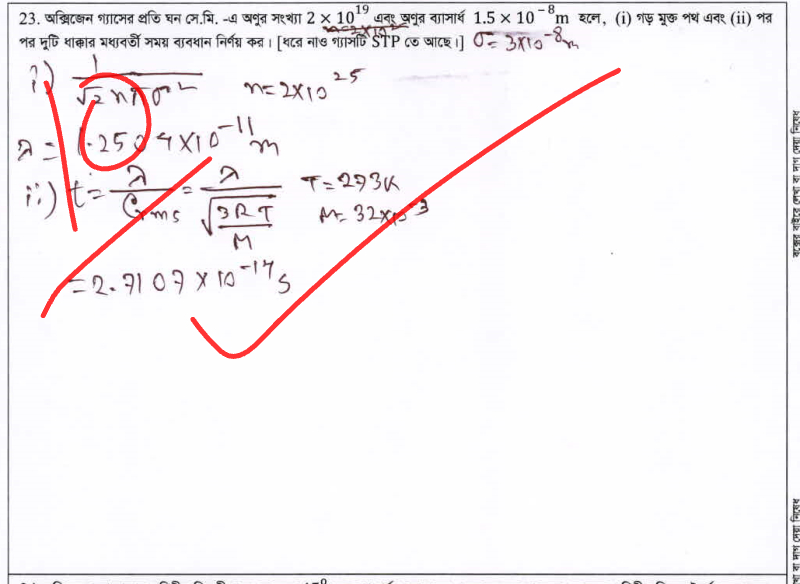 23. অক্সিজেন গ্যাসের প্রতি ঘন সে.মি. -এ অণুর সংখ্যা 2 × 10^19 এবং অণুর ব্যাসার্ধ 1.5 × 10^-8 m হলে, (i) গড় মুক্ত পথ এবং (ii) পর
পর দুটি ধাক্কার মধ্যবর্তী সময় ব্যবধান নির্ণয় কর। [ধরে নাও গ্যাসটি STP তে আছে।] σ = 3×10^-8 m
i) 1/(√2 nπσ^2) n=2×10^25
λ = 1.2504×10^-11 m
ii) t = λ/C_rms = λ/√(3RT/M) T=273K
M=32×10^-3
=2.7107×10^-14 s
বক্সের বাইরে লেখা বা দাগ দেয়া নিষেধ
বা দাগ দেয়া নিষেধ